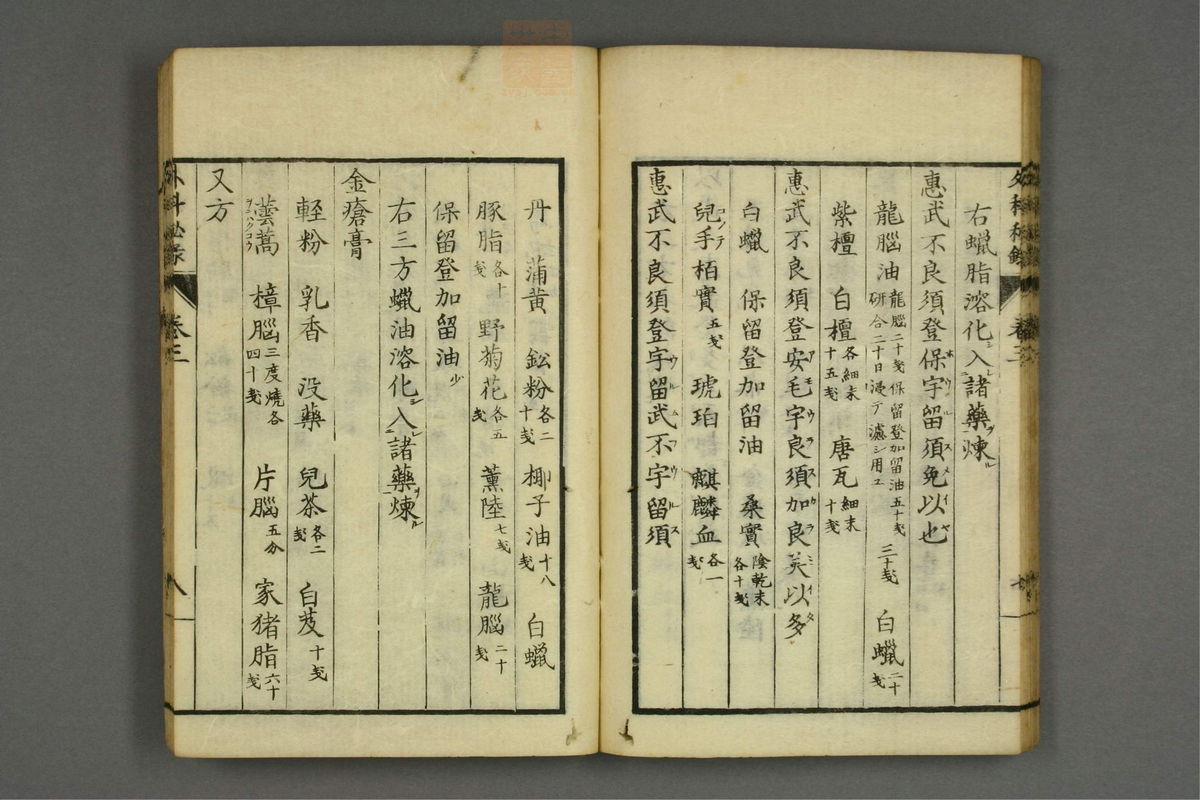 右蠟脂溶化シ入レ諸藥ヲ煉ル
惠武不良須登保宇留須免以也
龍腦油 龍腦二十戔保留登加留油五十戔研合二十日浸テ濾シ用ユ 三十戔 白蠟二十戔
紫檀 白檀各細末十五戔 唐瓦細末十戔
惠武不良須登安毛宇良須加良美以多
白蠟 保留登加留油 桑實陰乾末各十戔
兒手栢實五戔 琥珀 麒麟血各一戔
惠武不良須登宇留武不宇留須
丹 蒲黃 鈆粉各二十戔 椰子油十八戔 白蠟
豚脂各十戔 野菊花各五戔 薰陸七戔 龍腦二十戔
保留登加留油少
右三方蠟油溶化シ入レ諸藥ヲ煉ル
金瘡膏
軽粉 乳香 没藥 兒茶各二戔 白芨十戔
蕓蒿 樟腦三度燒各四十戔 片腦五分 家猪脂六十戔
又方
外科祕录 卷三 八